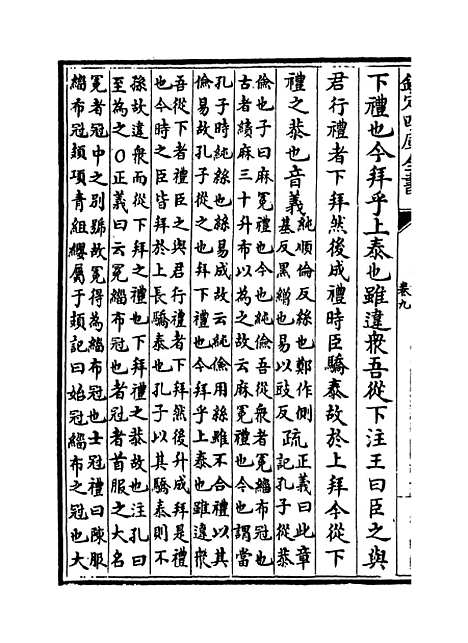 欽定四庫全書
卷九
下禮也今拜乎上泰也雖違衆吾從下注王曰臣之與
君行禮者下拜然後成禮時臣驕泰故於上拜今從下
禮之恭也音義
純順倫反絲也鄭作側
基反黑繒也易以豉反
疏
正義曰此章
記孔子從恭
儉也子曰麻冕禮也今也純儉吾從衆者冕緇布冠也
古者績麻三十升布以為之故云麻冕禮也今也謂當
孔子時純絲也絲易成故云純儉用絲雖不合禮以其
儉易故孔子從之也拜下禮也今拜乎上泰也雖違衆
吾從下者禮臣之與君行禮者下拜然後升成拜是禮
也今時之臣皆拜於上長驕泰也孔子以其驕泰則不
孫故違衆而從下拜之禮也下拜禮之恭故也注孔曰
至為之○正義曰云冕緇布冠也者冠者首服之大名
冕者冠中之别號故冕得為緇布冠也士冠禮曰陳服
緇布冠頍項青組纓屬于頍記曰始冠緇布之冠也大